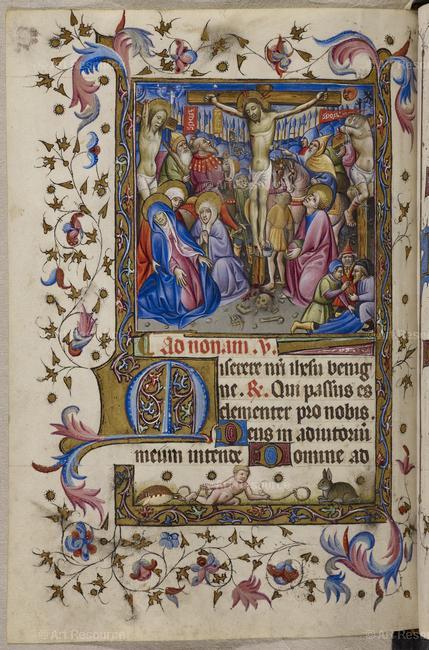 SPQR
Ad nonam .v.
Miserere nr̄i ihesu benig
ne. R̸. Qui passus es
clementer pro nobis.
Deus in adiutoriū
meum intende Domine ad
© Art Resource
© Art Resource